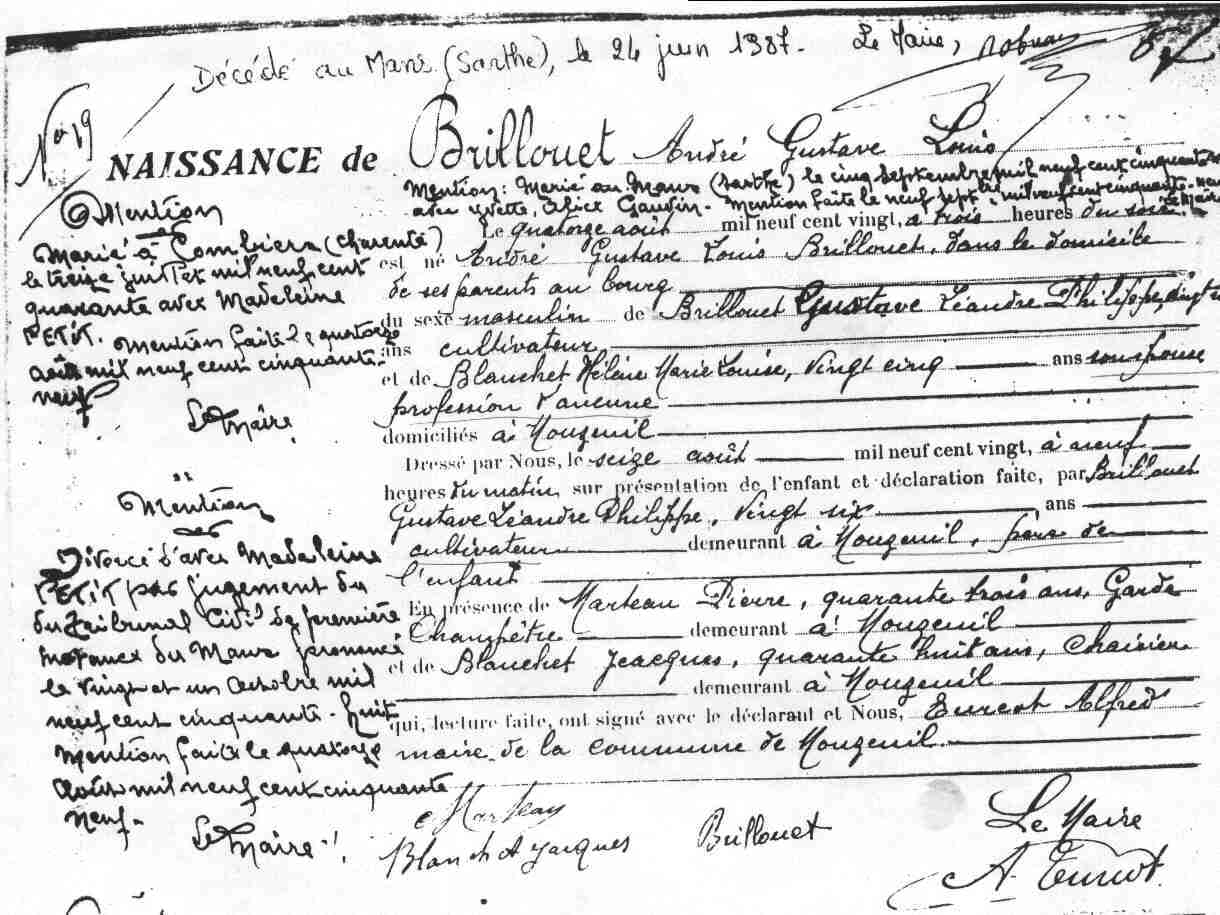 Décédé au Mans (Sarthe), le 24 juin 1987. Le Maire,
No 19
NAISSANCE de Brillouet André Gustave Louis
Mention: Marié au Mans (Sarthe) le cinq septembre mil neuf cent cinquante
avec Yvette, Alice Gaudin. Mention faite le neuf sept mil neuf cent cinquante-neuf
Le Maire
Le quatorze août mil neuf cent vingt, à trois heures du soir
est né André Gustave Louis Brillouet, dans le domicile
de ses parents au bourg
du sexe masculin de Brillouet Gustave Léandre Philippe, vingt
ans cultivateur,
et de Blanchet Hélène Marie Louise, vingt cinq ans son épouse
profession d'aucune
domiciliés à Mouzeuil
Dressé par Nous, le seize août mil neuf cent vingt, à neuf
heures du matin, sur présentation de l'enfant et déclaration faite, par Brillouet
Gustave Léandre Philippe, vingt six ans
cultivateur demeurant à Mouzeuil, père de
l'enfant
En présence de Marteau Pierre, quarante trois ans, Garde
Champêtre demeurant à Mouzeuil
et de Blanchet Jacques, quarante huit ans,
demeurant à Mouzeuil
qui, lecture faite, ont signé avec le déclarant et Nous, Turcot Alfred
maire de la commune de Mouzeuil
Mention
Marié à Combiers (Charente)
le treize juillet mil neuf cent
quarante avec Madeleine
PETIT. Mention faite le quatorze
août mil neuf cent cinquante-
neuf
Le Maire
Mention
Divorcé d'avec Madeleine
PETIT par jugement du
du Tribunal Civil de première
instance du Mans prononcé
le vingt et un octobre mil
neuf cent cinquante-huit
Mention faite le quatorze
août mil neuf cent cinquante
neuf.
Le Maire
Marteau
Blanchet Jacques
Brillouet
Le Maire
A. Turcot